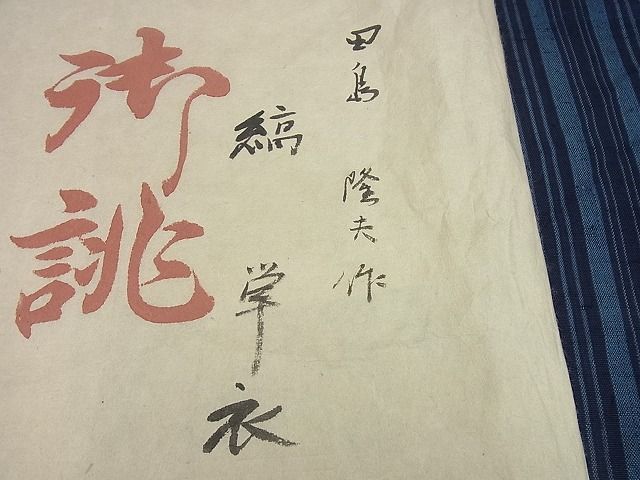 田島 隆夫 作
縞 単衣
御誂